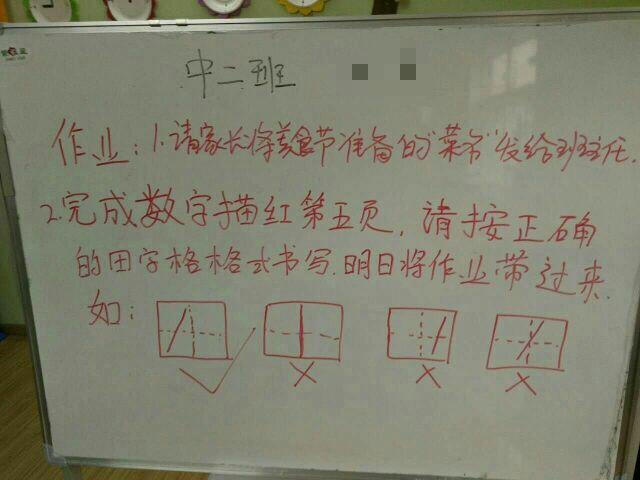 中二班
作业：1.请家长将美食节准备的“菜名”发给班主任.
2.完成数字描红第五页，请按正确
的田字格格式书写.明日将作业带过来.
如：